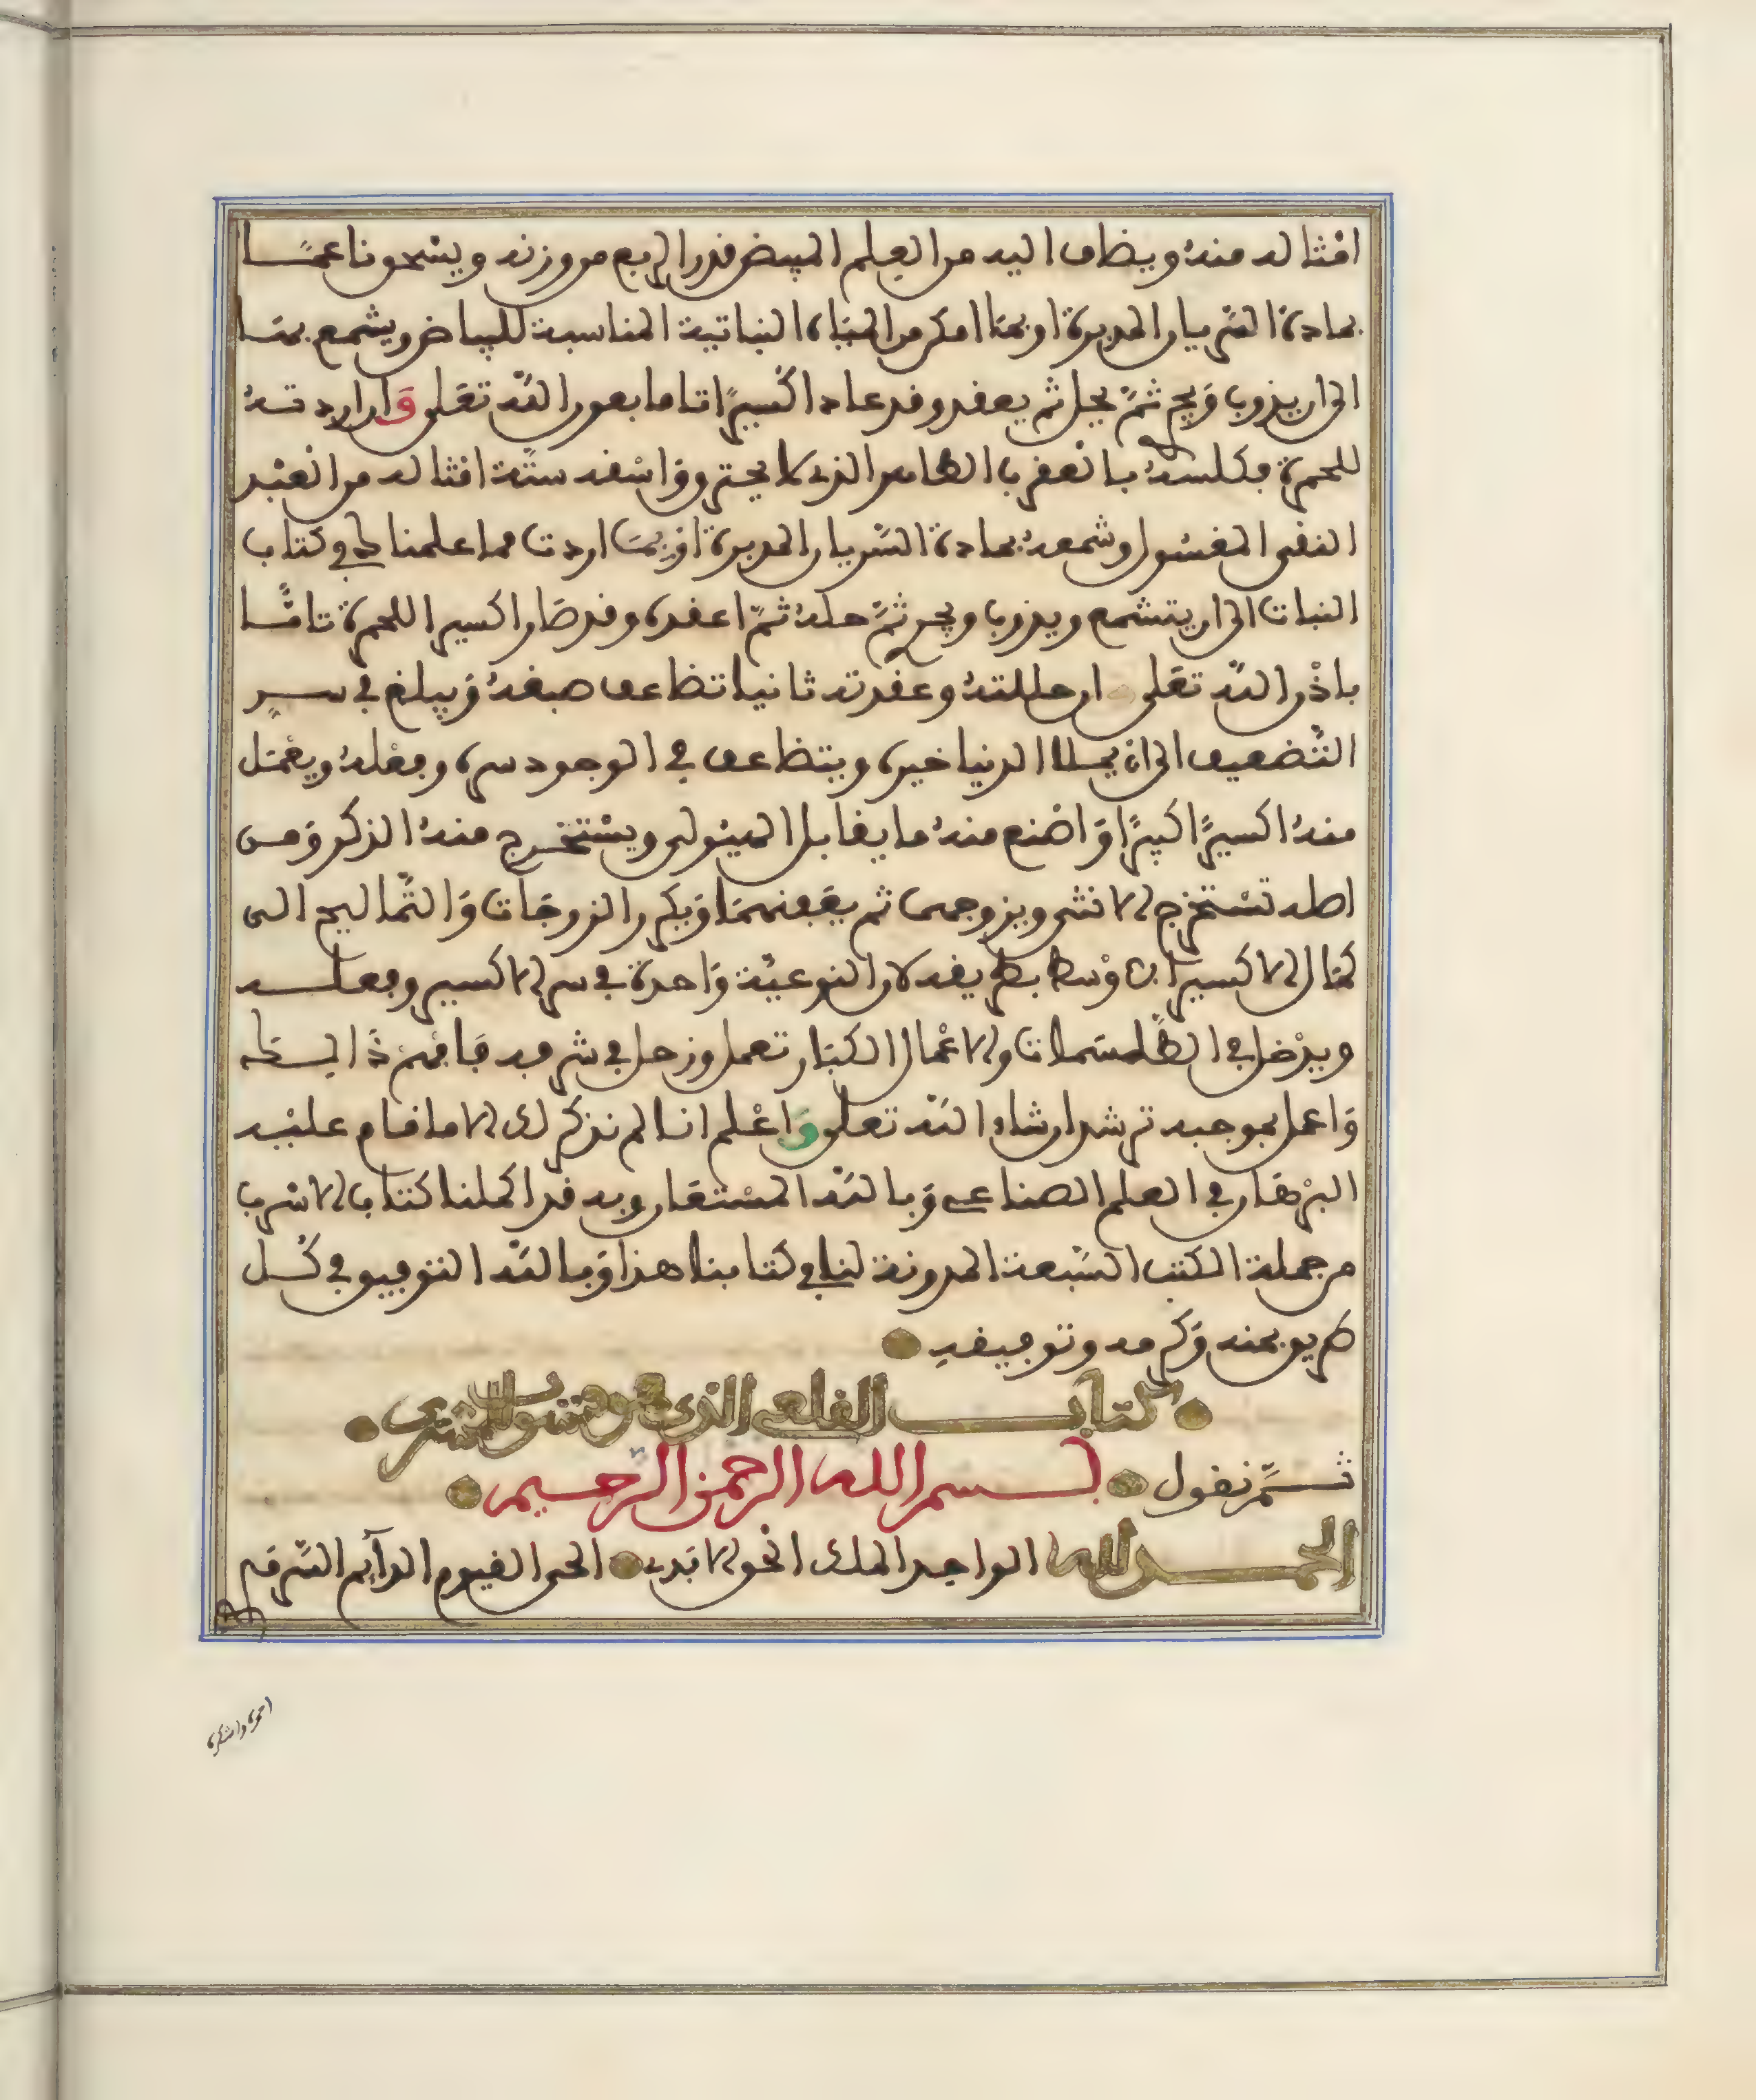 امثاله منه ويضاف اليه من العلم المبيض قدر الربع من وزنه ويسحق ناعمًا
بمادة السريان المدبرة او بما امكن من المياه النباتية المناسبة للبياض ويشمع بها
الى ان يذوب ويجري ثم يحل ثم يعقد وقد عاد اكسيرًا تاما بعون الله تعلى وان اردته
للحمرة فكلسه بالعقرب الطاهر الذي لا يحترق واسقه ستة امثاله من العبد
النقي المغسول وشمعه بمادة السريان المدبرة او بما اردت مما علمناك في كتاب
النبات الى ان يتشمع ويذوب ويجري ثم حله ثم اعقده وقد صار اكسيرا للحمرة تامًّا
باذن الله تعلى ان حللته وعقدته ثانيا تضاعف صبغه ويبلغ في سر
التضعيف الى ان يملا الدنيا خيره ويتضاعف في الوجود سره وفعله ويعمل
منه اكسيرًا كبيرًا واصنع منه ما يقابل الهيولى ويستخرج منه الذكر ومن
اصله تستخرج الانثى ويزوجهما ثم يعفنهما ويكرر الزوجات والتماليح الى
كمال الاكسير الاوسط بطريقه لان النوعية واحدة في سر الاكسير وفعله
ويدخل في الطلسمات والاعمال الكبار تعمل وزحل في شرفه فافهم ذالك
واعمل بموجبه ترشد ان شاء الله تعلى واعلم اننا لم نذكر لك الا ما قام عليه
البرهان في العلم الصناعي وبالله المستعان وبه قد اكملنا كتاب الاسرب
من جملة الكتب السبعة المدونة لنا في كتابنا هذا وبالله التوفيق في كل
طريق بمنه وكرمه وتوفيقه
كتاب القلعي الذي هو منسوب للمشتري
ثم نقول بسم الله الرحمن الرحيم
الحمد لله الواحد الملك الحق الابدي الحي القيوم الدايم السرمدي
احمده واشكره